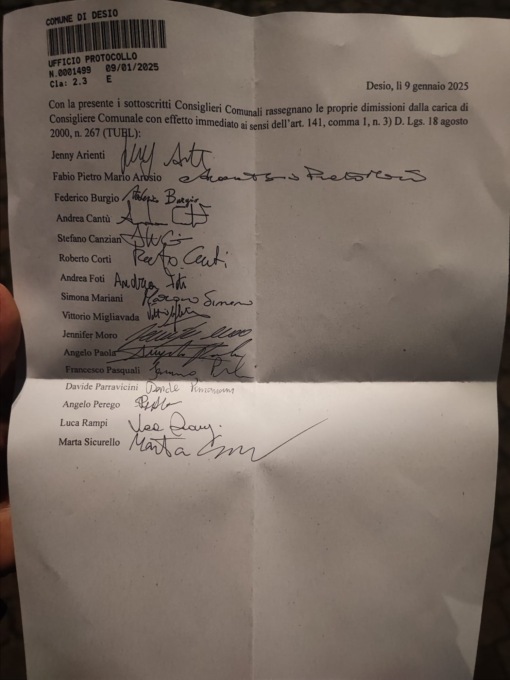 COMUNE DI DESIO
UFFICIO PROTOCOLLO
N.0001499 09/01/2025
Cla: 2.3 E
Desio, lì 9 gennaio 2025
Con la presente i sottoscritti Consiglieri Comunali rassegnano le proprie dimissioni dalla carica di
Consigliere Comunale con effetto immediato ai sensi dell'art. 141, comma 1, n. 3) D. Lgs. 18 agosto
2000, n. 267 (TUEL):
Jenny Arienti
Fabio Pietro Mario Arosio
Federico Burgio
Andrea Cantù
Stefano Canzian
Roberto Corti
Andrea Foti Andrea Foti
Simona Mariani
Vittorio Migliavada
Jennifer Moro
Angelo Paola
Francesco Pasquali
Davide Parravicini
Angelo Perego
Luca Rampi
Marta Sicurello Marta